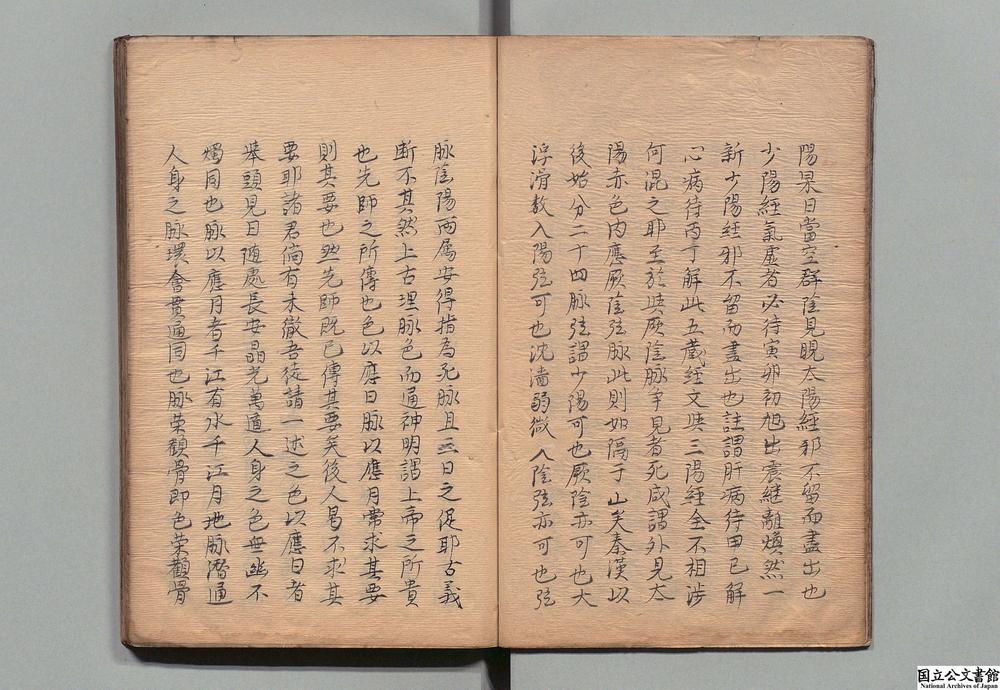 陽杲日當空群陰見晛太陽經邪不留而盡出也
少陽經氣虛者必待寅卯初旭出震継離煥然一
新少陽経邪不留而盡出也註謂肝病待甲已解
心病待丙丁解此五藏經文與三陽経全不相渉
何混之耶至於與厥陰脉争見者死咸謂外見太
陽赤色内應厥陰弦脉此則如隔于山矣秦漢以
後始分二十四脉弦謂少陽可也厥陰亦可也大
浮滑数入陽弦可也沈濇弱微入陰弦亦可也弦
脉陰陽両属安得指為死脉且三日之促耶古義
断不其然上古理脉色而通神明謂上帝之所貴
也先師之所傳也色以應日脉以應月常求其要
則其要也然先師既已傳其要矣後人曷不求其
要耶諸君倘有未徹吾徒請一述之色以應日者
挙頭見日随處長安晶光萬道人身之色無幽不
燭同也脉以應月者千江有水千江月地脉潜通
人身之脉環會貫通同也脉荣顴骨即色荣顴骨
国立公文書館
National Archives of Japan